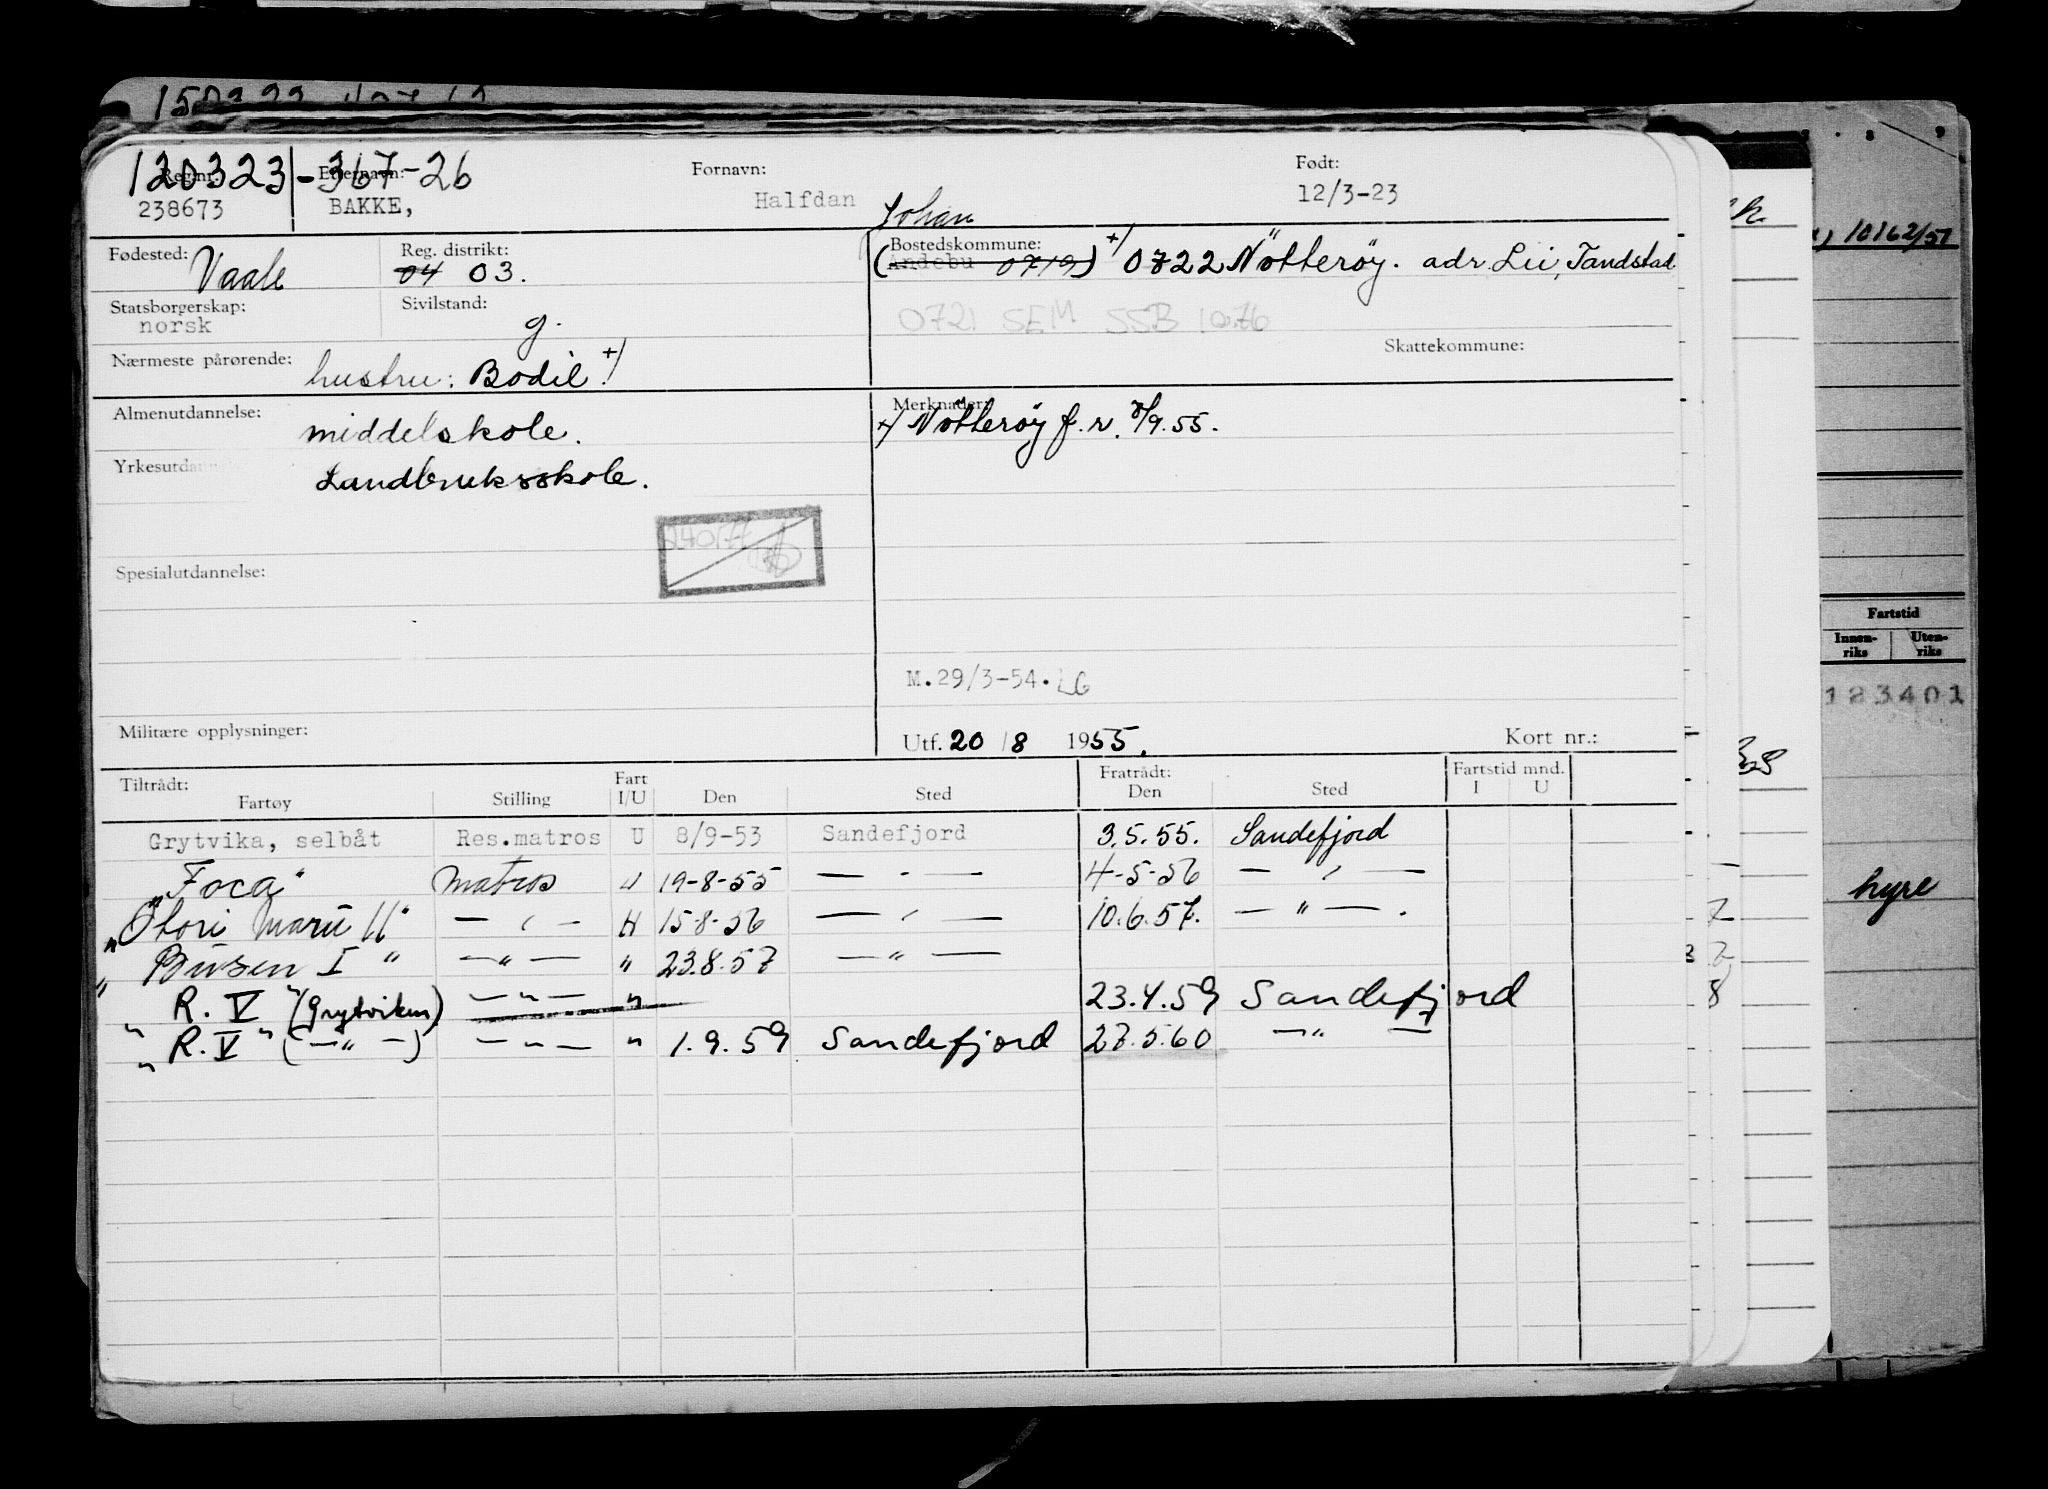 120323-367-26
Reg.nr. Etternavn: Fornavn: Født:
238673 BAKKE, Halfdan Johan 12/3-23
Fødested: Vaale Reg. distrikt: 04 03. Bostedskommune: (Andebu 0719) +/ 0722 Nötterøy. adr. Lii, Tandstad
Statsborgerskap: norsk Sivilstand: g.
0721 SEM SSB 10.76
Nærmeste pårørende: hustru: Bodil +/ Skattekommune:
Almenutdannelse: middelskole. Merknader:
+/ Nötterøy f.r. 8/9.55.
Landbruksskole.
Spesialutdannelse:
M.29/3-54. LG
Militære opplysninger: Utf. 20/8 1955. Kort nr.:
Tiltrådt: Fart Fratrådt: Fartstid mnd.
Fartøy Stilling I/U Den Sted Den Sted I U
Grytvika, selbåt Res.matros U 8/9-53 Sandefjord 3.5.55. Sandefjord
"Foca" Matros U 19-8-55 — - — 4-5-56 — , —
"Otori Maru II" — , — H 15-8-56 — , — 10.6.57. — " — .
"Busen I" — " — " 23.8.57 — " —
"R. V" (Grytviken) — " — " 23.4.59 Sandefjord
"R. V" (— " —) — " — " 1.9.59 Sandefjord 27.5.60 — " —
10162/51
Fartstid
Innen-riks Uten-riks
123401
hyre